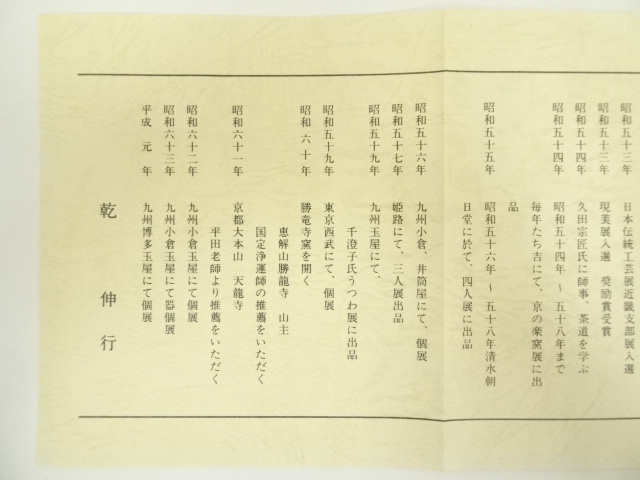 昭和五十三年 日本伝統工芸展近畿支部展入選
昭和五十三年 現美展入選 奨励賞受賞
昭和五十四年 久田宗匠氏に師事、茶道を学ぶ
昭和五十四年 昭和五十四年~五十八年まで
毎年たち吉にて、京の楽窯展に出
品
昭和五十五年 昭和五十六年~五十八年清水朝
日堂に於て、四人展に出品
昭和五十六年 九州小倉、井筒屋にて、個展
昭和五十七年 姫路にて、三人展出品
昭和五十九年 九州玉屋にて、
千澄子氏うつわ展に出品
昭和五十九年 東京西武にて、個展
昭和六十年 勝竜寺窯を開く
恵解山勝龍寺 山主
国定浄運師の推薦をいただく
昭和六十一年 京都大本山 天龍寺
平田老師より推薦をいただく
昭和六十二年 九州小倉玉屋にて個展
昭和六十三年 九州小倉玉屋にて器個展
平成元年 九州博多玉屋にて個展
乾伸行